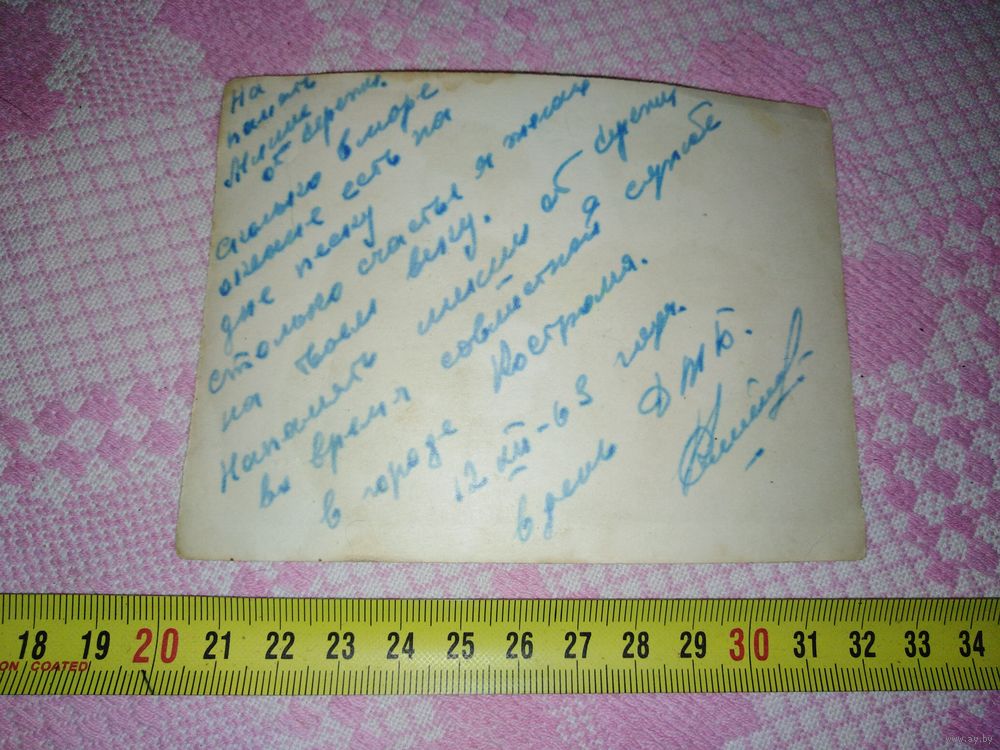 На
память
Мише
от Сережи.
сколько в море
океане есть на
дне песку
столько счастья я желаю
на твоем веку.
Напамять миши от сережи
во время совместной службе
в городе Кострома.
12 XII-63 года.
в день ДМБ.
18 19 20 21 22 23 24 25 26 27 28 29 30 31 32 33 34
ON COATED
www.ay.by